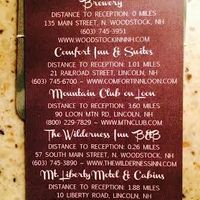 Brewery
DISTANCE TO RECEPTION: 0 MILES
135 MAIN STREET, N. WOODSTOCK, NH
(603) 745-3951
WWW.WOODSTOCKINNNH.COM
Comfort Inn & Suites
DISTANCE TO RECEPTION: 1.01 MILES
21 RAILROAD STREET, LINCOLN, NH
(603) 745-6700 ~ WWW.COMFORTINNLOON.COM
Mountain Club on Loon
DISTANCE TO RECEPTION: 3.60 MILES
90 LOON MTN RD, LINCOLN, NH
(800) 229-7829 ~ WWW.MTNCLUB.COM
The Wilderness Inn B&B
DISTANCE TO RECEPTION: 0.26 MILES
57 SOUTH MAIN STREET, N. WOODSTOCK, NH
(603) 745-3890 ~ WWW.THEWILDERNESSINN.COM
Mt. Liberty Motel & Cabins
DISTANCE TO RECEPTION: 1.88 MILES
10 LIBERTY ROAD, LINCOLN, NH